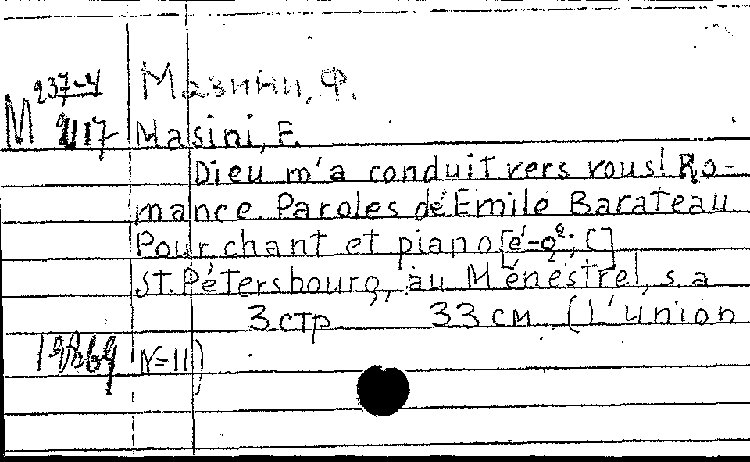 М 237-4 Мазини, Ф.
2117 Masini, F.
Dieu m'a conduit vers vous! Ro-
mance. Paroles de Emile Barateau
Pour chant et piano [é-g²; C]
St. Pétersbourg, au Ménestrel, s.a
3 стр 33 см (l'union
N=11)